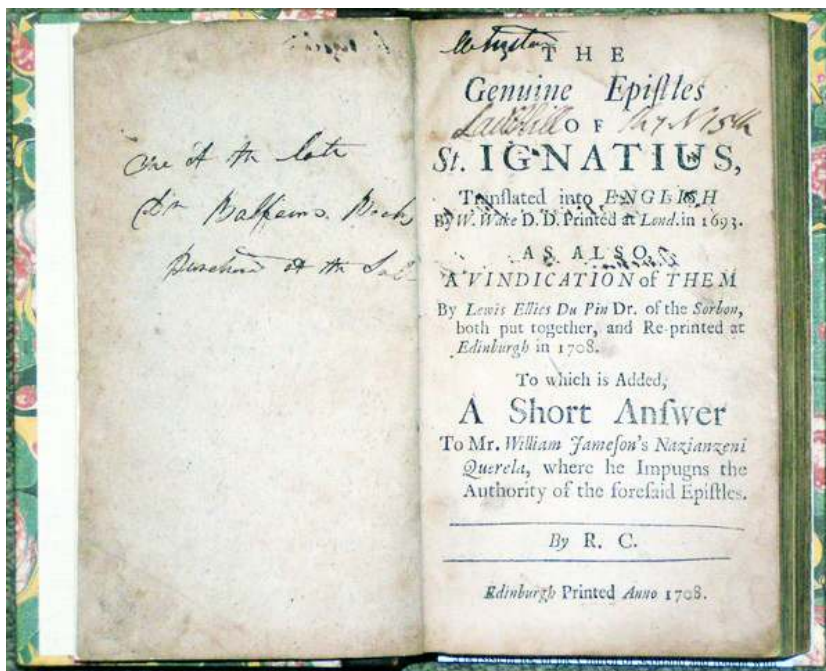 one of the late
Dr Balfours Books
purchased at the Sale
THE
Genuine Epiſtles
OF
St. IGNATIUS,
Tranſlated into ENGLISH
By W. Wake D. D. Printed at Lond. in 1693.
AS ALSO,
A VINDICATION of THEM
By Lewis Ellies Du Pin Dr. of the Sorbon,
both put together, and Re-printed at
Edinburgh in 1708.
To which is Added,
A Short Anſwer
To Mr. William Jameſon's Nazianzeni
Querela, where he Impugns the
Authority of the foreſaid Epiſtles.
By R. C.
Edinburgh Printed Anno 1708.